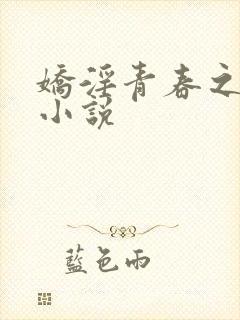 嬌淫青春之
小説
藍色雨